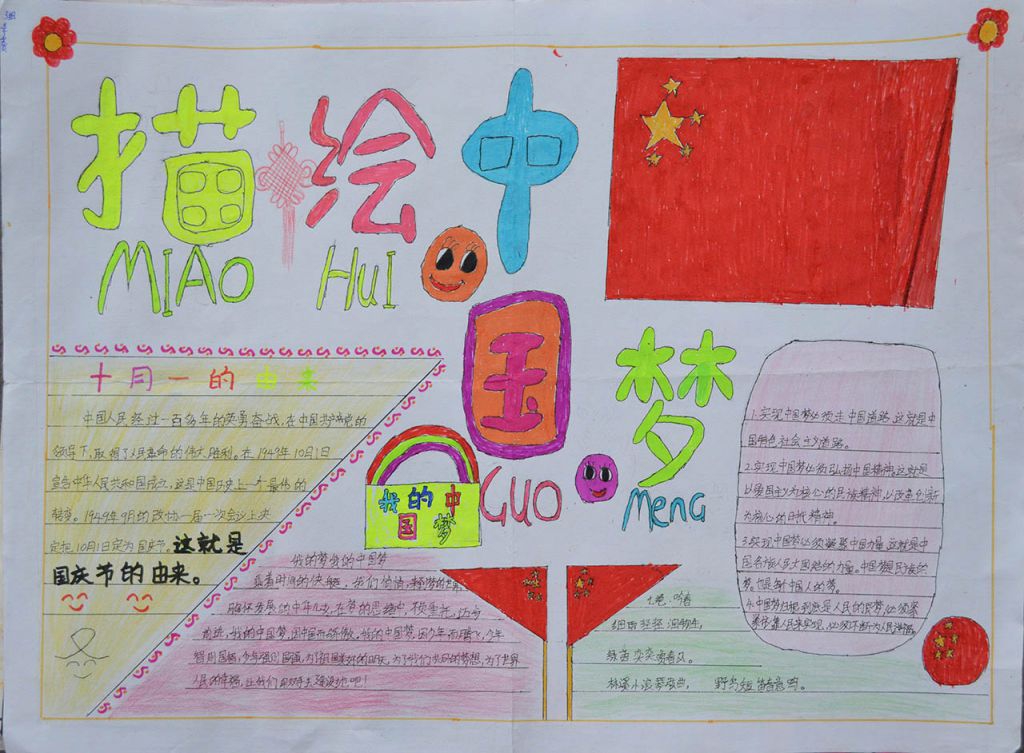 描绘中
MIAO HUI
国梦
GUO MENG
十月一的由来
中国人民经过一百多年的英勇奋战,在中国共产党的
领导下,取得了人民革命的伟大胜利。在1949年10月1日
宣告中华人民共和国成立,这是中国历史上一个最伟的
转变。1949年9月的政协一届一次会议上决
定把10月1日定为国庆节。这就是
国庆节的由来。
我的中
国梦
我的梦我的中国梦
前进,我的中国梦,因中国而骄傲,我的中国梦,因少年而腾飞,少年
人民的幸福,让我们
1.实现中国梦必须走中国道路,这就是中
国特色社会主义道路。
2.实现中国梦必须弘扬中国精神,这就是
以爱国主义为核心的民族精神,以改革创新
为核心的时代精神。
3.实现中国梦必须凝聚中国力量,这就是中
国各族人民大团结的力量。中国梦是民族的
梦,也是每个中国人的梦。
4.中国梦归根到底是人民的梦,必须紧
紧依靠人民来实现,必须不断为人民造福。
七绝·吟春
细雨轻轻润物生,